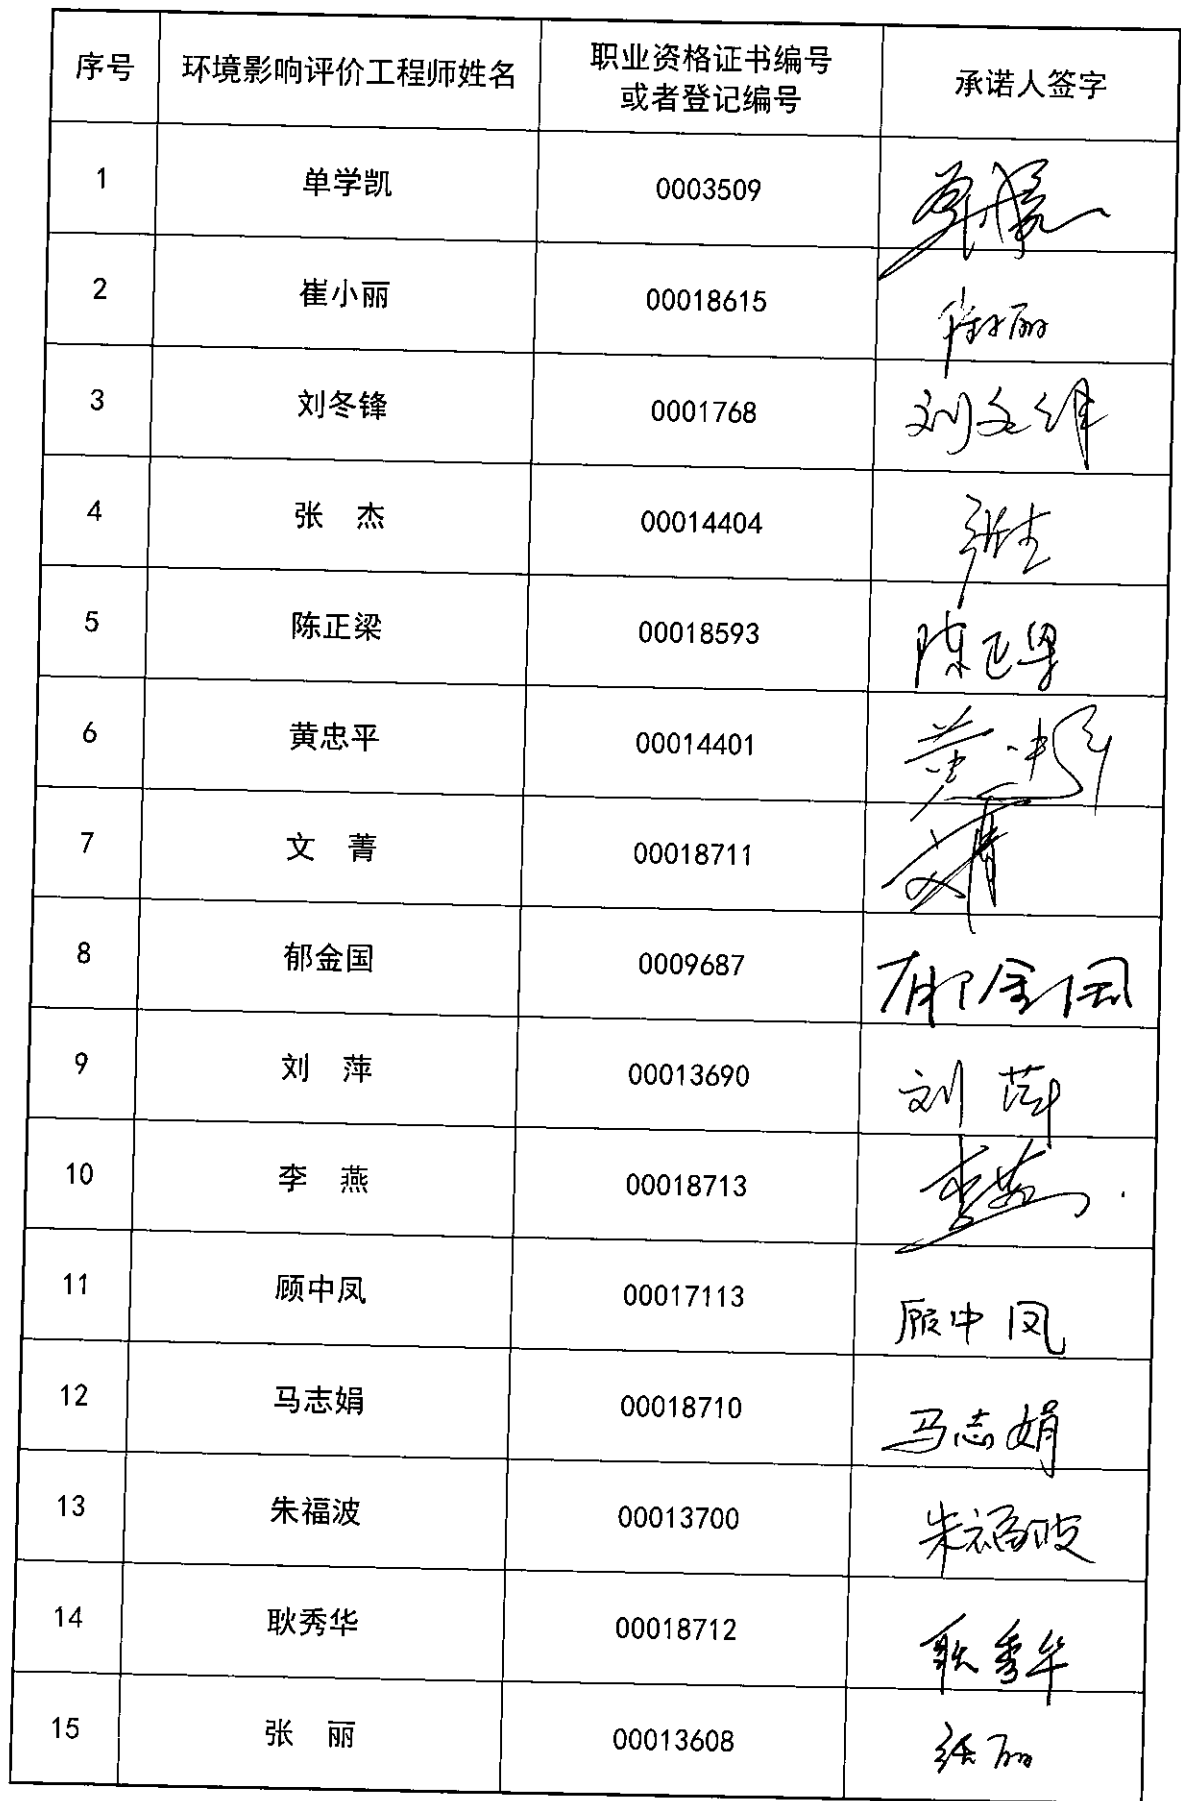 序号 环境影响评价工程师姓名 职业资格证书编号 或者登记编号 承诺人签字
1 单学凯 0003509
2 崔小丽 00018615
3 刘冬锋 0001768
4 张 杰 00014404 张杰
5 陈正梁 00018593 陈正梁
6 黄忠平 00014401
7 文 菁 00018711 文菁
8 郁金国 0009687 郁金国
9 刘 萍 00013690 刘萍
10 李 燕 00018713 李燕
11 顾中凤 00017113 顾中凤
12 马志娟 00018710 马志娟
13 朱福波 00013700 朱福波
14 耿秀华 00018712 耿秀华
15 张 丽 00013608 张丽